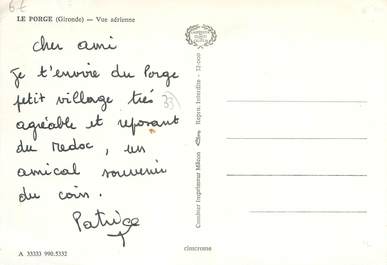 6€
LE PORGE (Gironde) — Vue aérienne
cher ami
Je t'envoie du Porge
petit village très
agréable et reposant
du Medoc, un
amical souvenir
du coin.
Patrice
33
A 33333 990.5332
Combier Imprimeur Mâcon
Repro. Interdite - 32-000
cimcrome